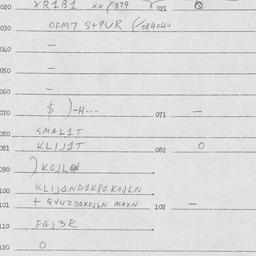 020 XR1B1 xx(379 021
030 OFM7 S+PUR (/084040
040 —
050 —
060 —
070 $ )-H--- 071 —
080 SMAL1T
081 KLIJ1T 082 0
090 )KOJLN
100 KLIJ1ND1KP1KOJLN
101 + QVUZD1KOJLN MAXN 102 —
110 FAJ3R
120 0